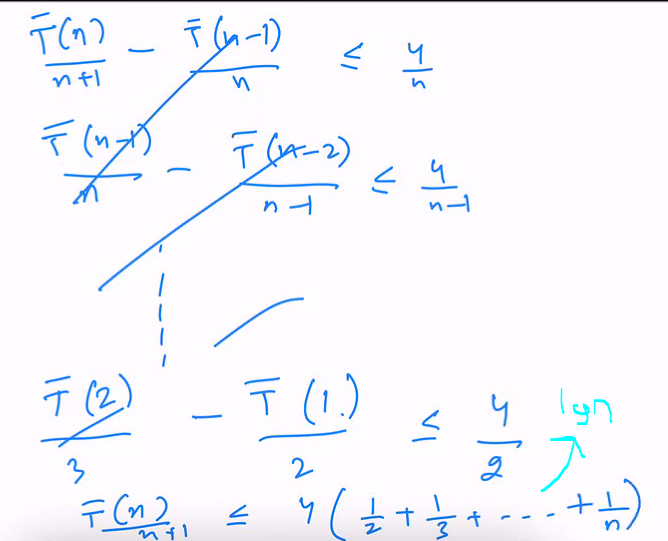 T̄(n)/n+1 − T̄(n−1)/n ≤ 4/n
T̄(n−1)/n − T̄(n−2)/n−1 ≤ 4/n−1
T̄(2)/3 − T̄(1.)/2 ≤ 4/2 lgn
T̄(n)/n+1 ≤ 4(1/2 + 1/3 + --- + 1/n)